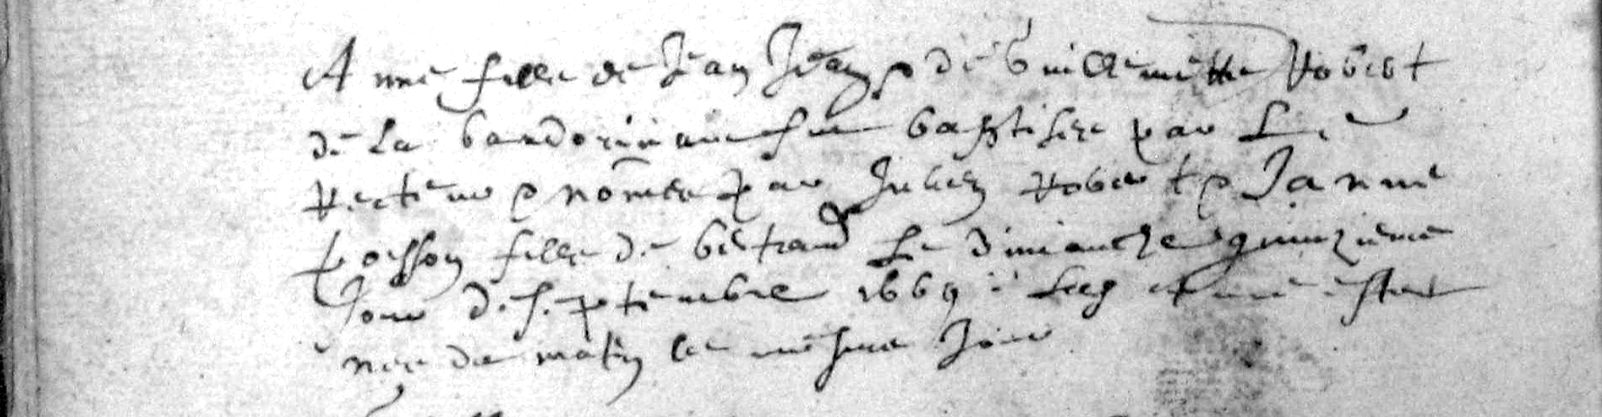 Anne fille de Jean Jean & de Guillemette Robert
de la baudoriniaue fut baptisee par Le
Recteur & nomee par Julien Robert & Janne
poesson fille de bertrand Le dimanche quinzieme
Jour de septembre 1669 estant
nee du matin le mesme Jour